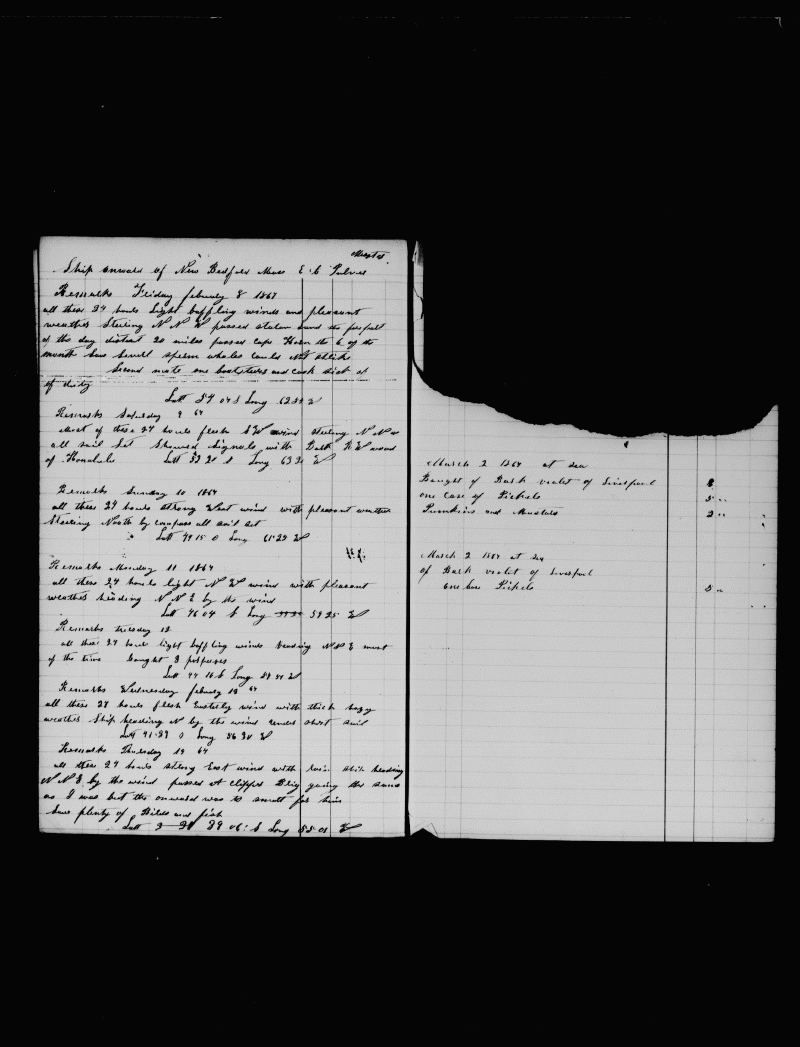 Master
Ship onward of New Bedford Mass E. C. Pulver
Remarks Friday februay 8 1867
all these 24 hours light baffling winds and pleasant
weather Stering N N W passed staten land the forpart
of the day distant 20 miles passed cape Horn the 6 of the
month saw sevrll sperm whales could not strike
second mate one boatsteer and cook sick of
of duty
Latt 54 04 S Long 62 W
Remarks Saturday 9 67
Most of these 24 hours fresh S W wind stering N N
all sail set showed signals with Bark N W wood
of Honolulu Latt 53 S Long 63 W
Remarks Sunday 10 1867
all these 24 hours strong West wind with pleasant weather
Stering North by compass all sail set
Latt 49 15 0 Long 61 22 W
Remarks Monday 11 1867
all these 24 hours light N W wind with pleasant
weather heading N N E by the wind
Latt 46 04 S Long 59 25 W
Remarks tuesday 12
all these 24 hours light baffling winds heading N N E most
of the time Caught 3 porpuses
Latt 44 16 S Long W
Remarks Wednesday februay 13 67
all these 24 hours fresh Easterly wind with thick hazy
weather Ship heading N by the wind under short sail
Latt 41-29 0 Long 56 30 W
Remarks Thursday 14 67
all these 24 hours strong East wind with rain Ship heading
N N E by the wind passed at clipper Brig going the same
as I was but the onward was to smart for him
Saw plenty of Birds and fish
Latt 39 06 S Long 55 01 W
March 2 1867 at sea
Bought of Bark violet of Liverpool 8
one case of Pickels 5 "
Pumkins and Musterd 2 "
March 2 1867 at sea
of Bark violet of Liverpool
one box Pickels 5 "